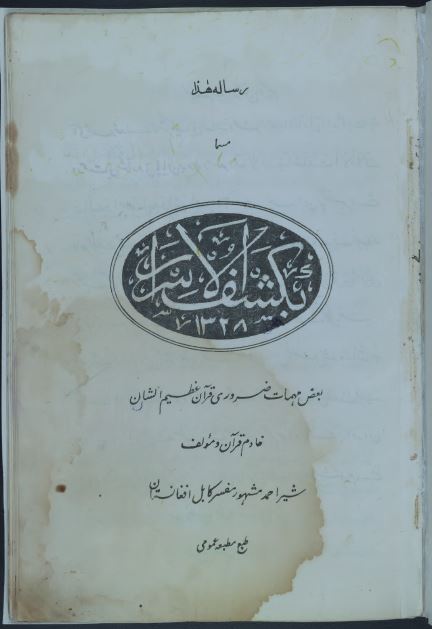 رساله هذا
مسما
بکشف الاسرار
۱۳۲۸
بعض مهمات ضروری قرآن عظیم الشان
خادم قرآن و مؤلف
شیر احمد مشهور مفسر کابل افغانستان
طبع مطبعه عمومی